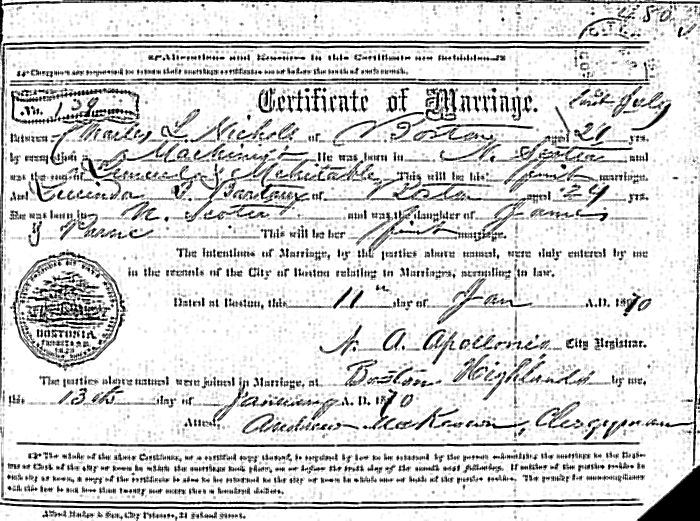 Alterations and Erasures in this Certificate are forbidden.
Clergymen are requested to return their marriage certificates on or before the tenth of each month.
No. 139
Certificate of Marriage.
Between Charles L. Nichols of Boston aged 21 yrs.
by occupation a Machinist He was born in N. Scotia and
was the son of & Mehitable This will be his first marriage.
And Lucinda of Boston aged 24 yrs.
She was born in N. Scotia and was the daughter of James
& This will be her first marriage.
The Intentions of Marriage, by the parties above named, were duly entered by me
in the records of the City of Boston relating to Marriages, according to law.
Dated at Boston, this 11th day of Jan A.D. 1870
BOSTONIA
N. A. Apollonio City Registrar.
The parties above named were joined in Marriage, at Boston Highlands by me,
this 13th day of January A.D. 1870
Attest, Andrew McKeown, Clergyman
The whole of the above Certificate, or a certified copy thereof, is required by law to be returned by the person solemnizing the marriage to the Regis-
trar or Clerk of the city or town in which the marriage took place, on or before the tenth day of the month next following. If neither of the parties resides in
such city or town, a copy of the certificate is also to be returned to the city or town in which one or both of the parties reside. The penalty for noncompliance
with this law is not less than twenty nor more than a hundred dollars.
Alfred Mudge & Son, City Printers, 34 School Street.